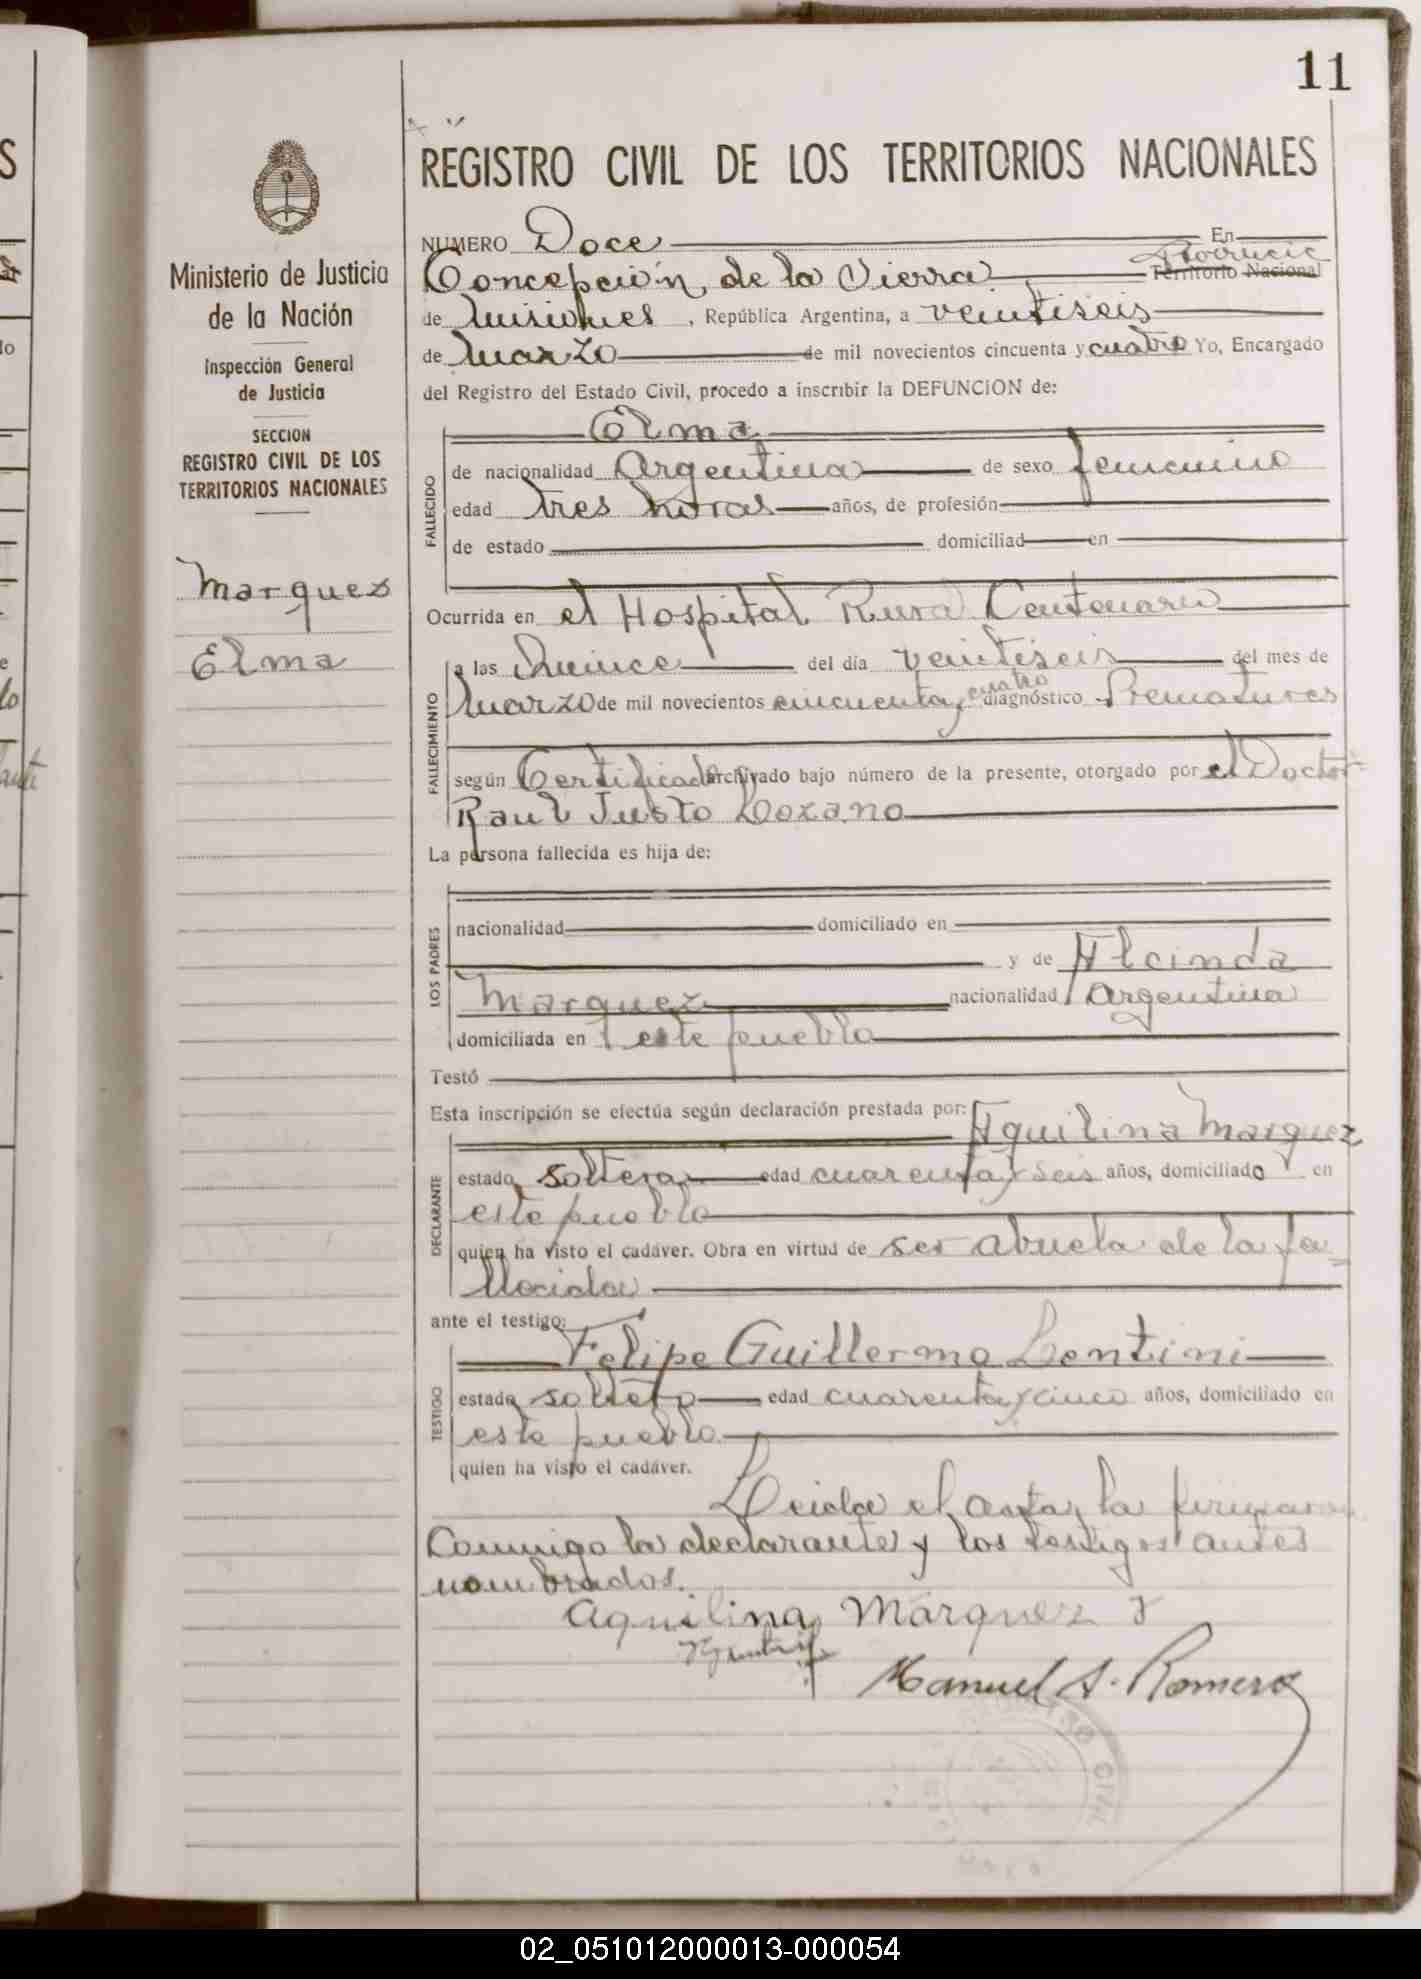 11
REGISTRO CIVIL DE LOS TERRITORIOS NACIONALES
Ministerio de Justicia
de la Nación
Inspección General
de Justicia
SECCION
REGISTRO CIVIL DE LOS
TERRITORIOS NACIONALES
Marquez
Elma
NUMERO Doce En
Concepción de la Sierra Territorio Nacional
de Misiones, República Argentina, a veintiseis
de Marzo de mil novecientos cincuenta y cuatro Yo, Encargado
del Registro del Estado Civil, procedo a inscribir la DEFUNCION de:
Elma
FALLECIDO
de nacionalidad Argentina de sexo femenino
edad tres horas años, de profesión
de estado domiciliad en
Ocurrida en el Hospital Rural Centenario
FALLECIMIENTO
a las Quince del día veintiseis del mes de
Marzo de mil novecientos cincuenta y cuatro diagnóstico Prematurez
según Certificado archivado bajo número de la presente, otorgado por el Doctor
Raul Justo Lozano
La persona fallecida es hija de:
LOS PADRES
nacionalidad domiciliado en
y de Alcinda
Marquez nacionalidad Argentina
domiciliada en este pueblo
Testó
Esta inscripción se efectúa según declaración prestada por: Aquilina Marquez
DECLARANTE
estado soltera edad cuarenta y seis años, domiciliado en
este pueblo
quien ha visto el cadáver. Obra en virtud de ser abuela de la fa-
llecida
ante el testigo:
Felipe Guillermo Lentini
TESTIGO
estado soltero edad cuarenta y cinco años, domiciliado en
este pueblo
quien ha visto el cadáver.
Leida el acta, la firmaron
Conmigo la declarante y los testigos antes
nombrados.
Aquilina Márquez
Manuel A. Romero
02_051012000013-000054